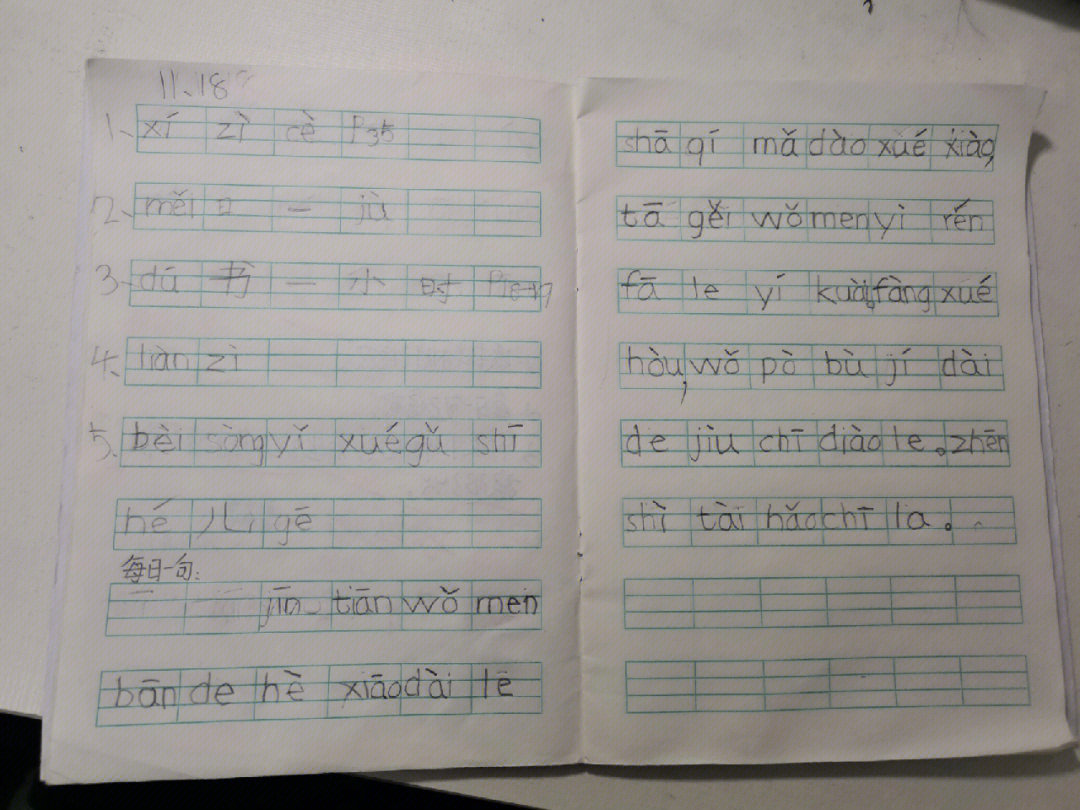 11.18
1、xí zì cè P35
2、měi 日 一 jù
3、dú 书 一 小 时 P16-17
4、liàn zì
5、bèi sòng yǐ xué gǔ shī
hé 儿 gē
每日一句：
jīn tiān wǒ men
bān de hè xiāo dài lē
shā qí mǎ dào xué xiào,
tā gěi wǒ men yì rén
fā le yí kuài, fàng xué
hòu, wǒ pò bù jí dài
de jiu chī diào le。zhēn
shì tài hǎo chī la。